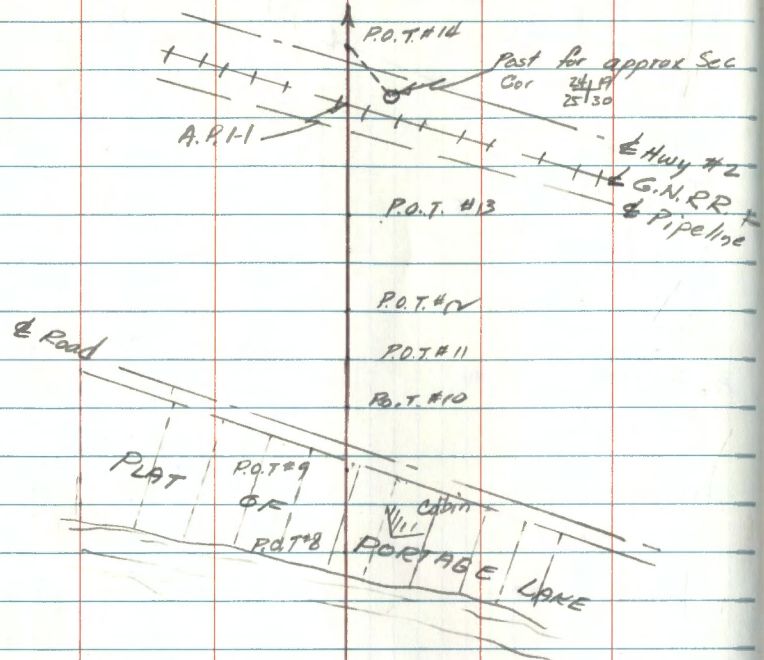 P.O.T. #14
Post for approx Sec
Cor 24|19
25|30
A.P. 1-1
℄ Hwy #2
℄ G.N.RR.
℄ Pipeline
P.O.T. #13
P.O.T. #12
℄ Road
P.O.T #11
P.O.T. #10
PLAT
P.O.T #9
OF
Cabin
P.O.T #8
PORTAGE
LAKE